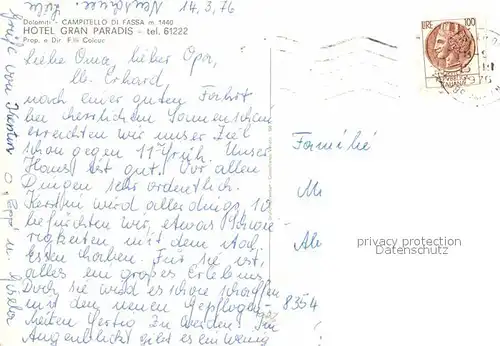 14.3.76
Dolomiti - CAMPITELLO DI FASSA m. 1440
HOTEL GRAN PARADIS - tel. 61222
Prop. e Dir. F.lli
Liebe Oma, lieber Opa,
lb. Erhard,
nach einer guten Fahrt
bei herrlichem Sonnenschein
erreichten wir unser Ziel
schon gegen 11 früh. Unser
Haus ist gut. Vor allen
Dingen sehr ordentlich.
Kerstin wird allerdings, so
befürchten wir, etwas Schwie-
rigkeiten mit dem
Essen haben. Für sie ist
alles ein großes Erlebnis.
Doch sie wird es schon schaffen
mit den neuen Gepflogen-
heiten fertig zu werden. Im
Augenblick gibt es ein wenig
Grüße von Kerstin
u. Gisela
LIRE 100
Familie
M
8354
privacy protection
Datenschutz